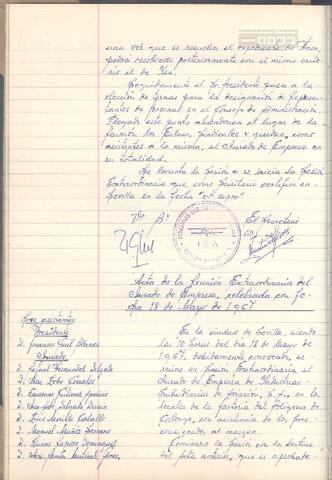 una vez que se resuelva el expediente de
podra resolverse posteriormente con el mismo crite
rio el de Isa.
Seguidamente el Sr. Presidente pasa a la
elección de ternas para la designación de Represen
tantes de personal en el Consejo de Administración.
Llegado este punto abandonan el lugar de la
reunión los Enlaces Sindicales y quedan como
asistentes a la misma, el Jurado de Empresa en
su totalidad.
Se levanta la Sesión y se inicia la Sesión
Extraordinaria que como Secretario certifico en
Sevilla en la fecha "ut supra"
Vº Bº
El Secretario
ISA
Acta de la Reunión Extraordinaria del
Jurado de Empresa, celebrada con fe
cha 18 de Mayo de 1967
Sres asistentes
Presidente
D. Gil Blanes
Jurados
D. Rafael Fernandez Delgado
D. Jose Lobo Corrales
D. Laureano
D. Jose Luis Delgado Rivera
D. Luis
D. Manuel Muñoz Serrano
D. Lucas Dominguez
D. Jose Martinez
En la ciudad de Sevilla, siendo
las 10 horas del dia 18 de Mayo de
1967, debidamente convocado, se
reune en sesión Extraordinaria el
Jurado de Empresa de Industrias
Subsidiarias de Aviación, S.A., en los
locales de la factoria del Poligono de
Calonge, con asistencia de los Sres
consignados al margen.
Comienza la sesión con la lectura
del Acta anterior, que es aprobada